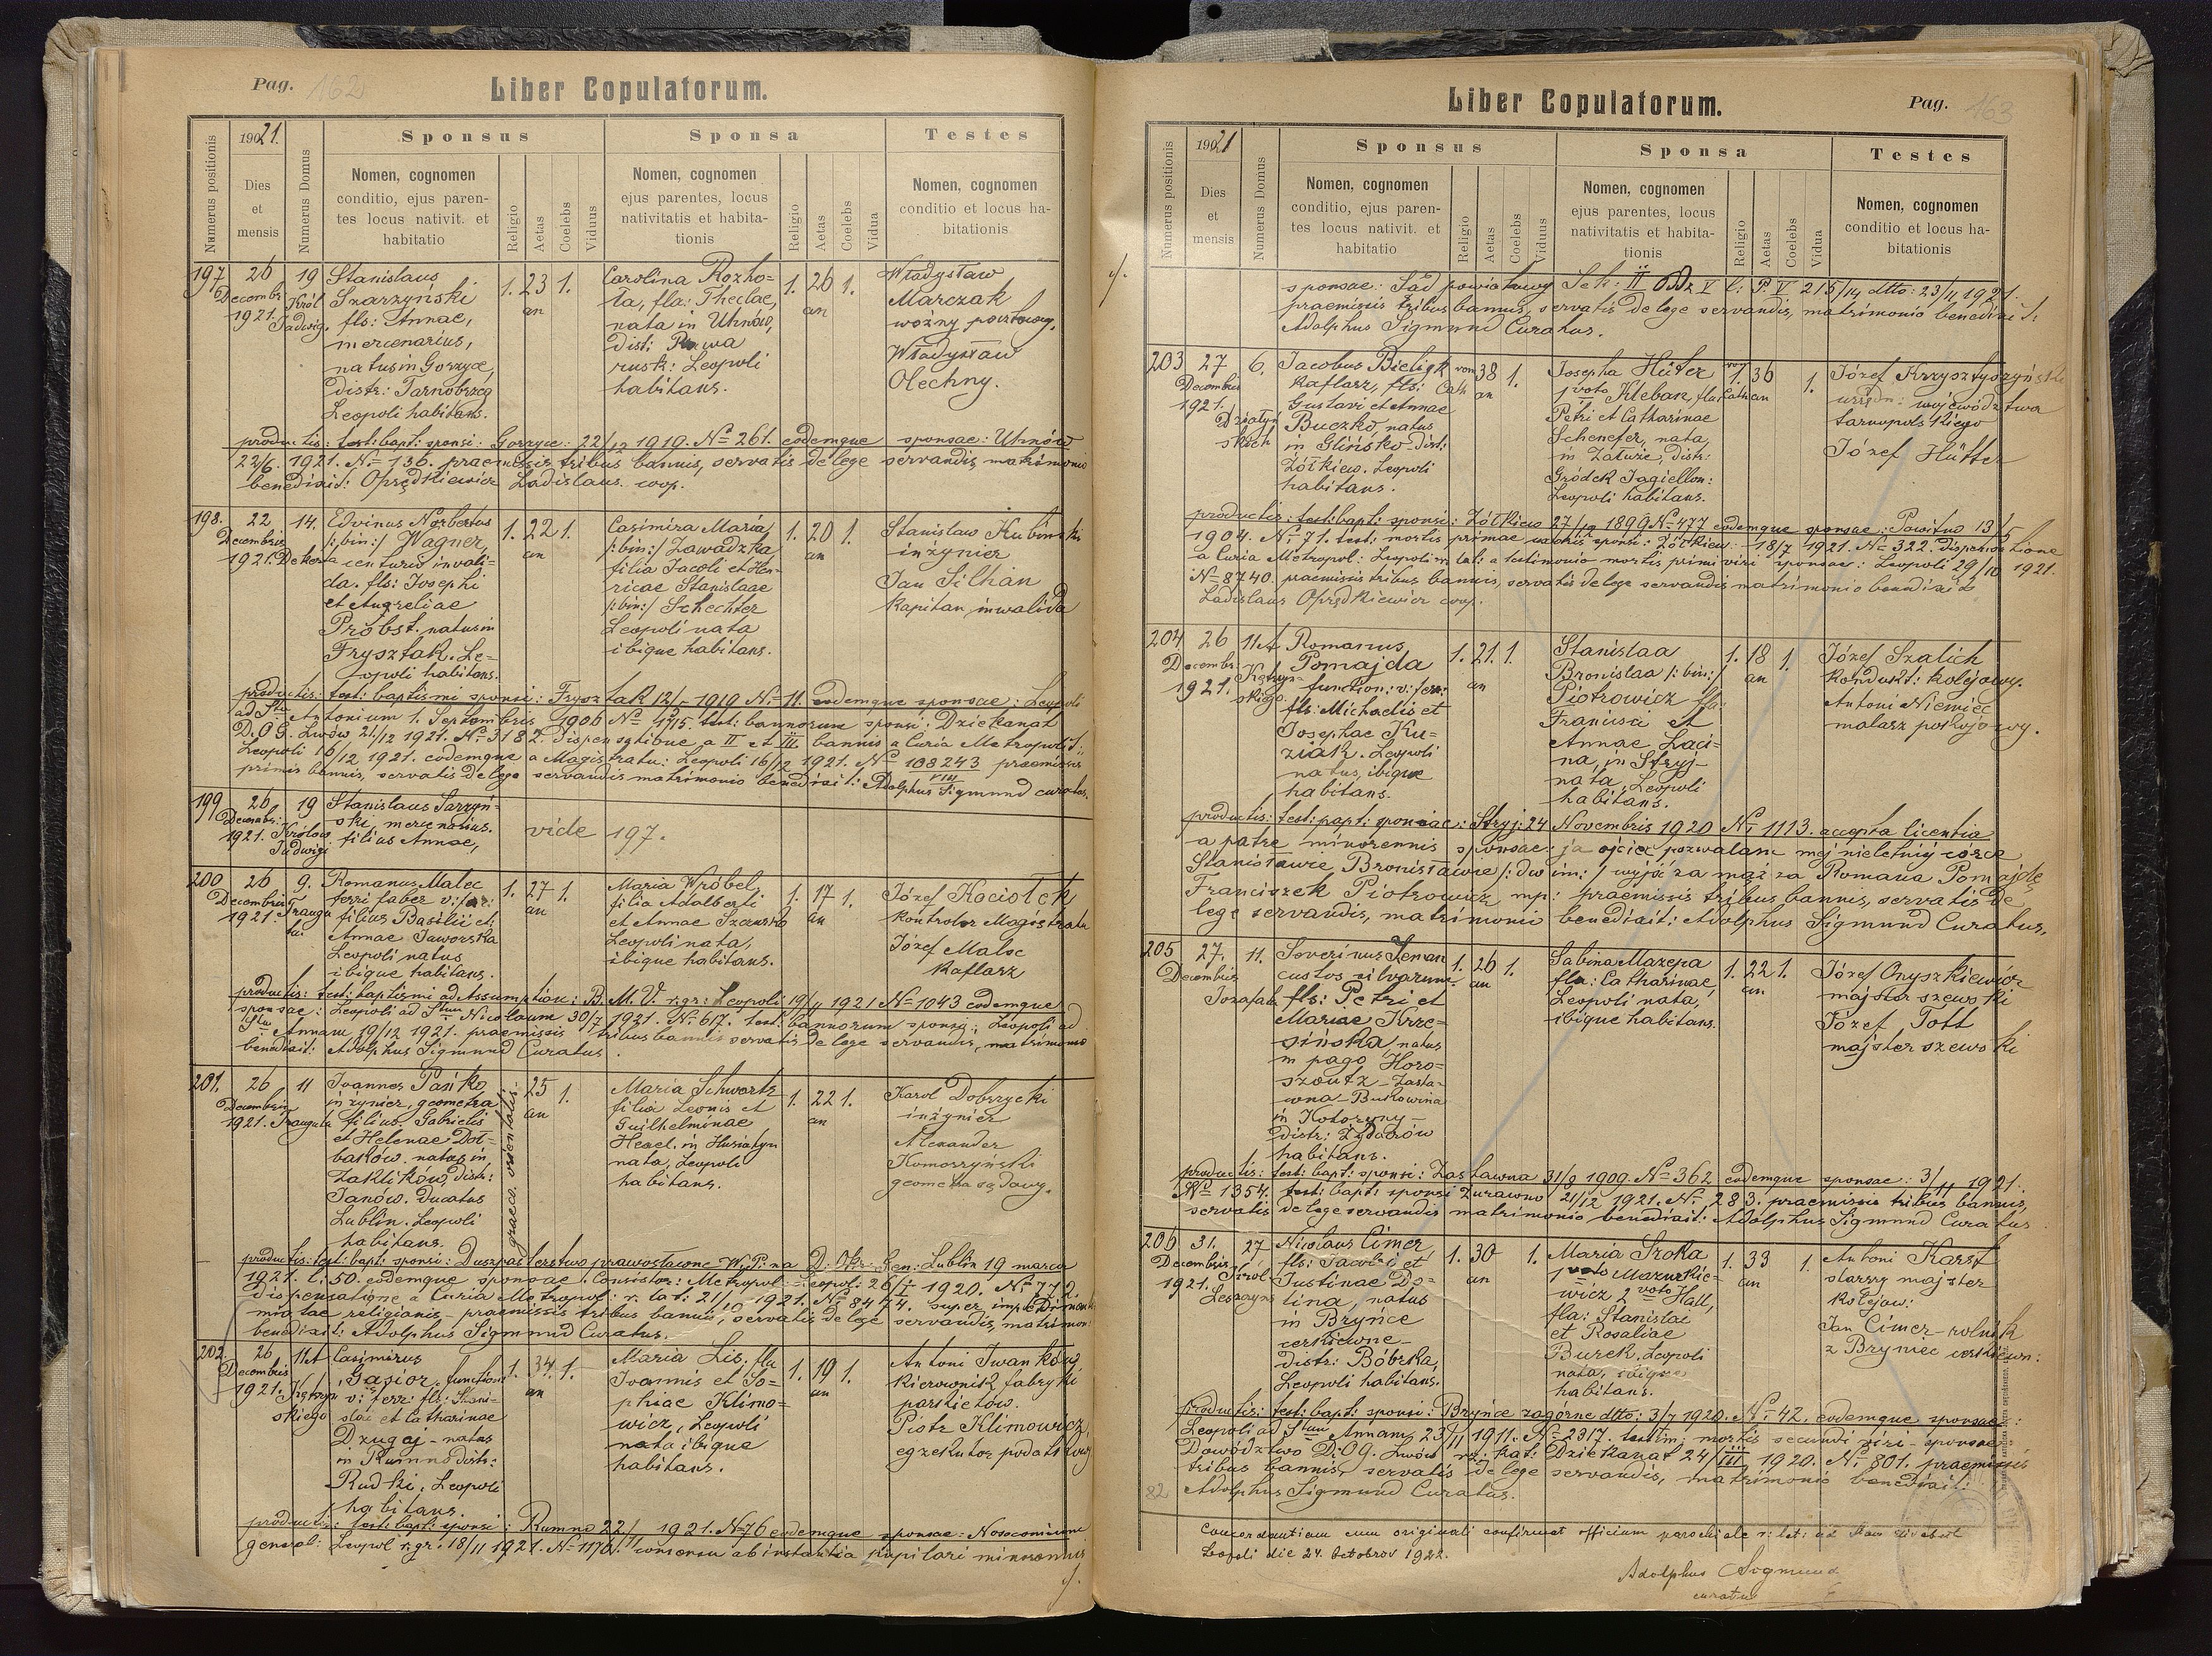 Pag. 162
Liber Copulatorum.
Numerus positionis
1921.
Dies
et
mensis
Numerus Domus
Sponsus
Nomen, cognomen
conditio, ejus paren-
tes locus nativit. et
habitatio
Religio
Aetas
Coelebs
Viduus
Sponsa
Nomen, cognomen
ejus parentes, locus
nativitatis et habita-
tionis
Religio
Aetas
Coelebs
Vidua
Testes
Nomen, cognomen
conditio et locus ha-
bitationis
197
26
Decembr.
1921.
19
Król.
Jadwig.
Stanislaus
Szarzyński
fls: Annae,
mercenarius,
natus in Gorzyce,
distr: Tarnobrzeg
Leopoli habitans.
1. 23 an 1.
Carolina Rozho-
ła, fla: Theclae,
nata in Uhnów,
dist: Rawa
rusk: Leopoli
habitans.
1. 26 an 1.
Władysław
Marczak
woźny pocztowy.
Władysław
Olechny.
productis: test: bapt: sponsi: Gorzyce: 22/12 1919. No 261. eodemque sponsae: Uhnów
22/6. 1921. No 136. praemissis tribus bannis, servatis de lege servandis matrimonio
benedixit: Oprędkiewicz Ladislaus. coop.
198.
22
Decembris
1921.
14.
Dekerta
Edvinus Norbertus
/:bin:/ Wagner,
centurio invali-
da. fls: Josephi
et Aureliae
Pröbst. natus in
Frysztak. Le-
opoli habitans.
1. 22 an 1.
Casimira Maria
/:bin:/ Zawadzka
filia Jacobi et Hen-
ricae Stanislaae
/:bin:/ Schechter
Leopoli nata
ibique habitans.
1. 20 an 1.
Stanislaw Kubiński
inżynier
Jan Silhan
Kapitan inwalida
productis: test: baptismi sponsi: Frysztak 12/5 1919 No 11. eodemque sponsae: Leopoli
ad Stu Antonium 1. Septembris 1906 No 1715. test: bannorum sponsi: Dziekanat
D.O.G. Lwów 21/12 1921. No 3182. dispensatibus a II et III bannis a Curia Metropolit:
Leopoli 16/12 1921. eodemque a Magistratu: Leopoli 16/12 1921. No 108243/VIII praemissis
primis bannis, servatis de lege servandis matrimonio benedixit: Adolphus Sigmund curatus.
199
26
Decembr:
1921.
19
Królow.
Jadwigi
Stanislaus Sarzyń-
ski, mercenarius.
filius Annae,
vide 197.
200
26
Decembris
1921.
9.
Traugu
tta
Romanus Malec
ferri faber v: fer:
filius Basilii et
Annae Jaworska
Leopoli natus
ibique habitans.
1. 27 an 1.
Maria Wróbel,
filia Adalberti
et Annae Szansko
Leopoli nata,
ibique habitans.
1. 17 an 1.
Józef Kociołek
Kontrolor Magistratu
Józef Malec
Kaflarz
productis: test: baptismi ad Assumption: B. M. V. r. gr: Leopoli: 19/4 1921 No 1043 eodemque
sponsae: Leopoli ad Stum Nicolaum 30/7 1921. No 617. test: bannorum sponsi: Leopoli ad
Stu Annam 19/12 1921. praemissis tribus bannis servatis de lege servandis, matrimonio
benedixit: Adolphus Sigmund Curatus.
201.
26
Decembris
1921.
11
Traugutta
Joannes Pańko
inżynier, geometra
filius Gabrielis
et Helenae Doł-
baków. natus in
Zaklików, distr:
Janów. Ducatus
Lublin. Leopoli
habitans.
graeco. orientalis.
25 an 1.
Maria Schwartz
filia Leonis et
Guilhelminae
Hexel. in Husiatyn
nata, Leopoli
habitans.
1. 22 an 1.
Karol Dobrzycki
inżynier
Alexander
Komorzyński
geometra sądowy.
productis: test: bapt: sponsi: Duszpasterstwo prawosławne W. P. na D. Okr. Gen: Lublin 19 marca
1921. l: 50. eodemque sponsae: Consistor: Metropol: Leopol: 26/I 1920. No 772.
dispensatione a Curia Metropol: r. lat: 21/10 1921. No 8474. super impedimento
mixtae religionis praemissis tribus bannis, servatis de lege servandis, matrimon:
benedixit: Adolphus Sigmund Curatus.
202.
26
Decembris
1921.
11 et
Kętrzyń
skiego
Casimirus
Gąsior, functions
v: ferr: fls: Stani-
slai et Catharinae
Dzugaj - natus
in Rumno distr:
Rudki. Leopoli
habitans.
1. 34 an 1.
Maria Lis. fla
Joannis et So-
phiae Klimo-
wicz, Leopoli
nata ibique
habitans.
1. 19 an 1.
Antoni Iwanków,
Kierownik fabryki
parkietów.
Piotr Klimowicz,
egzekutor podatkowy
productis: test: bapt: sponsi: Rumno 22/11 1921. No 76 eodemque sponsae: Nosocomium
general: Leopol r. gr. 18/11 1921. No 1176. consensu ab instantia pupilari minorennis
./.
Liber Copulatorum.
Pag. 163
Numerus positionis
1921
Dies
et
mensis
Numerus Domus
Sponsus
Nomen, cognomen
conditio, ejus paren-
tes locus nativit. et
habitatio
Religio
Aetas
Coelebs
Viduus
Sponsa
Nomen, cognomen
ejus parentes, locus
nativitatis et habita-
tionis
Religio
Aetas
Coelebs
Vidua
Testes
Nomen, cognomen
conditio et locus ha-
bitationis
./.
sponsae: Sąd powiatowy Sek: II Odz V l: P. V 215/14 dtto: 23/11 1921.
praemissis tribus bannis, servatis de lege servandis, matrimonio benedixit:
Adolphus Sigmund Curatus.
203
27
Decembris
1921.
6.
Działyń
skich
Jacobus Bieligk
Kaflarz, fls:
Gustavi et Annae
Buczko, natus
in Glińsko distr:
Żółkiew. Leopoli
habitans.
rom Cath
38 an 1.
Josepha Hüter
1 voto Kleban, fla:
Petri et Catharinae
Schenefer, nata
in Zatuże, distr:
Gródek Jagiellon:
Leopoli habitans.
Cath
36 an 1.
Józef Krzysztyszyński
urzędn: województwa
tarnopolskiego
Józef Hütter
productis: test: bapt: sponsi: Żółkiew 27/12 1899 No 477 eodemque sponsae: Powitno 13/5
1904. No 71. test: mortis primae uxoris sponsi: Żółkiew 18/7 1921. No 322. dispensatione
a Curia Metropol: Leopoli r. lat: a testimonio mortis primi viri sponsae: Leopoli 29/10 1921.
No 8740. praemissis tribus bannis, servatis de lege servandis matrimonio benedixit
Ladislaus Oprędkiewicz coop.
204
26
Decembr.
1921.
11A
Kętrzyń-
skiego.
Romanus
Pomajda
function: v: ferr:
fls: Michaelis et
Josephae Ku-
ziak. Leopoli
natus, ibique
habitans.
1. 21. an 1.
Stanislaa
Bronislaa /:bin:/
Piotrowicz fla:
Francisci et
Annae Laci-
na, in Stryj-
nata, Leopoli
habitans.
1. 18 an 1.
Józef Szalich
Kondukt: kolejowy.
Antoni Niemiec
malarz pokojowy.
productis: test: bapt: sponsae: Stryj: 24 Novembris 1920 No 1113. accepta licentia
a patre minorennis sponsae: ja ojciec pozwalam mej nieletniej córce
Stanisławie Bronisławie /:dw im:/ wyjść za mąż za Romana Pomajdę
Franciszek Piotrowicz mp: praemissis tribus bannis, servatis de
lege servandis, matrimonii benedixit: Adolphus Sigmund Curatus.
205
27.
Decembris
11.
Jozafata
Severinus Seman
custos silvarum.
fls: Petri et
Mariae Krze-
sińska natus
in pago Horo-
szoutz - Zasta-
wna - Bukowina
in Kotoryny -
distr: Żydaczów
habitans.
1. 26 an 1.
Sabina Mazepa
fla: Catharinae,
Leopoli nata,
ibique habitans.
1. 22 an 1.
Józef Onyszkiewicz
majster szewski
Józef Tott
majster szewski
productis: test: bapt: sponsi: Zastawna 31/8 1909. No 362 eodemque sponsae: 3/11 1921.
No 1354. test: bapt: sponsi Żurawno 21/12 1921. No 283. praemissis tribus bannis,
servatis de lege servandis matrimonio benedixit: Adolphus Sigmund Curatus
206
31.
Decembris
1921.
27
Karol
Leszczyń
Nicolaus Cimer,
fls: Jacobi et
Justinae Do-
lina, natus
in Bryńce
cerkiewne -
distr: Bóbrka,
Leopoli habitans.
1. 30 an 1.
Maria Sroka
1 voto Mazurkie-
wicz 2 voto Hall,
fla: Stanislai
et Rosaliae
Burek, Leopoli
nata, ibique
habitans.
1. 33 an 1.
Antoni Karst
starszy majster
kolejow:
Jan Cimer - rolnik
z Bryniec cerkiewn:
Productis: test: bapt: sponsi: Bryńce zagórne dtto: 3/7 1920. No 42. eodemque sponsae:
Leopoli ad Stum Annam, 23/11 1911. No 2317. testim: mortis secundi viri - sponsae:
Dowództwo D.O.G. Lwów rz. kat: Dziekanat 24/III 1920. No 801. praemissis
tribus bannis, servatis de lege servandis, matrimonio benedixit:
82
Adolphus Sigmund Curatus.
Concordantiam cum originali confirmat officium parochiale r: lat: ad
Leopoli die 24. Octobris 1922.
Adolphus Sigmund
curatus